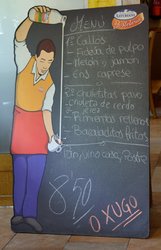 MENÚ
1º Callos
- Fideuá de pulpo
- Melón y jamón
- Ens caprese
2º Chuletitas pavo
- chuleta de cerdo
- Pimientos rellenos
- Bacaladitos fritos
Pan, vino, casa, Postre
8'50
O XUGO